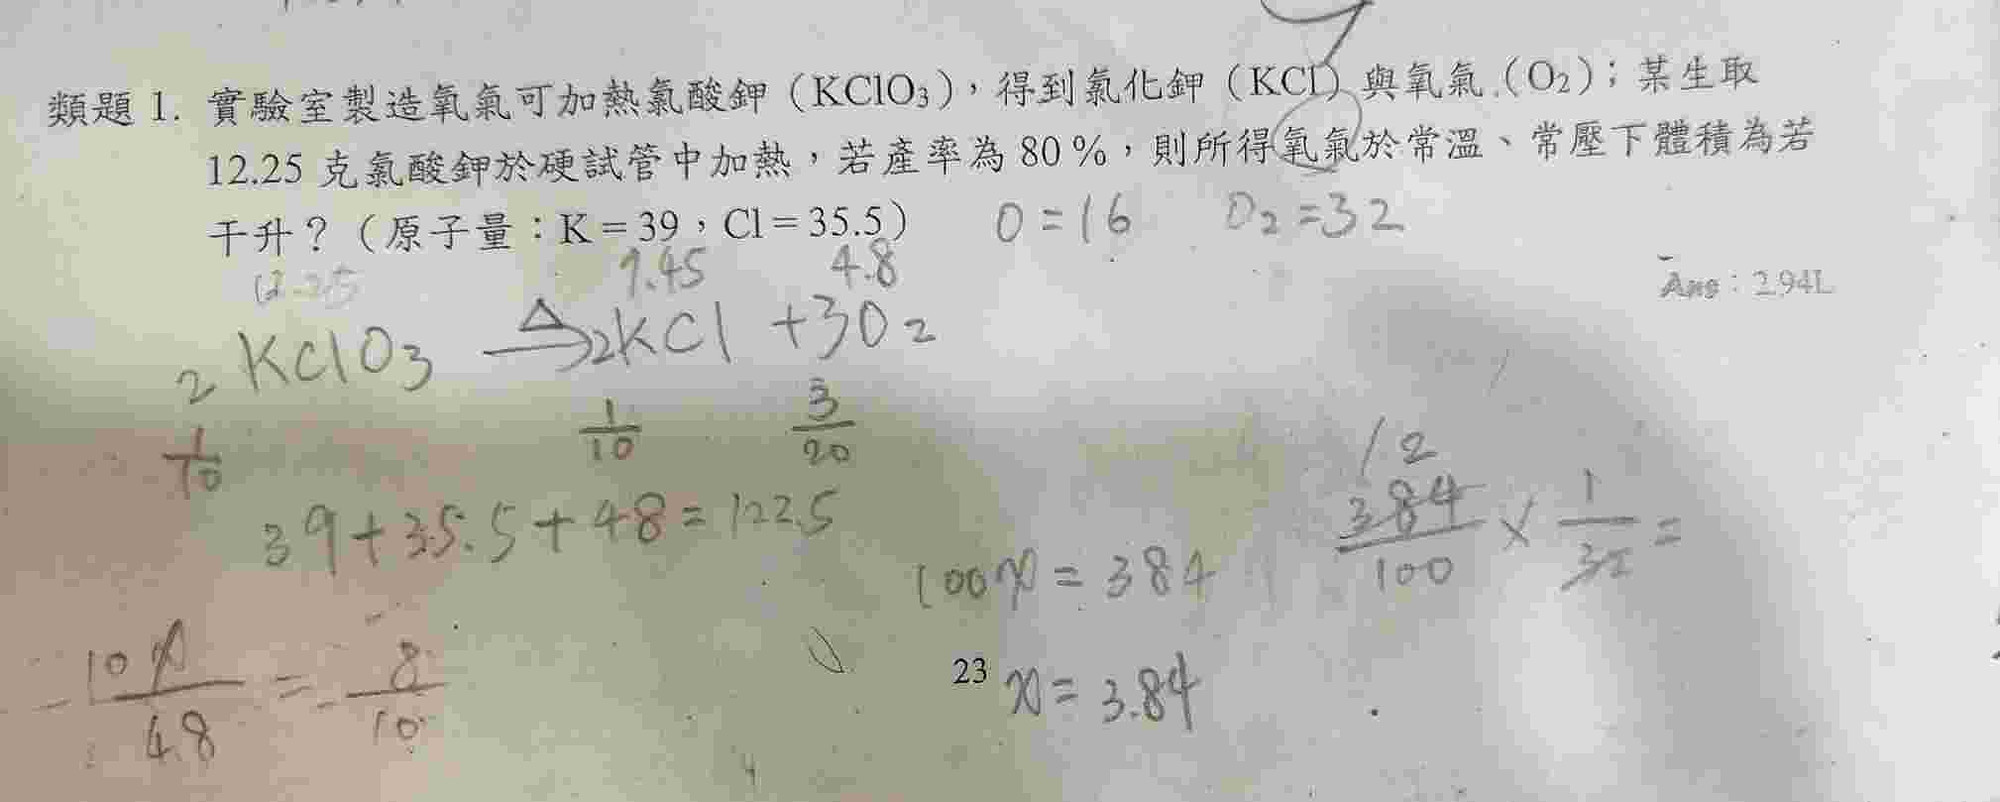 類題 1. 實驗室製造氧氣可加熱氯酸鉀(KClO₃),得到氯化鉀(KCl)與氧氣(O₂);某生取
12.25 克氯酸鉀於硬試管中加熱,若產率為 80 %,則所得氧氣於常溫、常壓下體積為若
干升?(原子量:K = 39,Cl = 35.5) O = 16 O₂ = 32
12.25 7.45 4.8
Ans : 2.94L
2 KClO₃ —Δ→ 2KCl + 3O₂
1/10 1/10 3/20
39 + 35.5 + 48 = 122.5
12
384/100 × 1/32 =
100x = 384
10x/48 = 8/10
23
x = 3.84